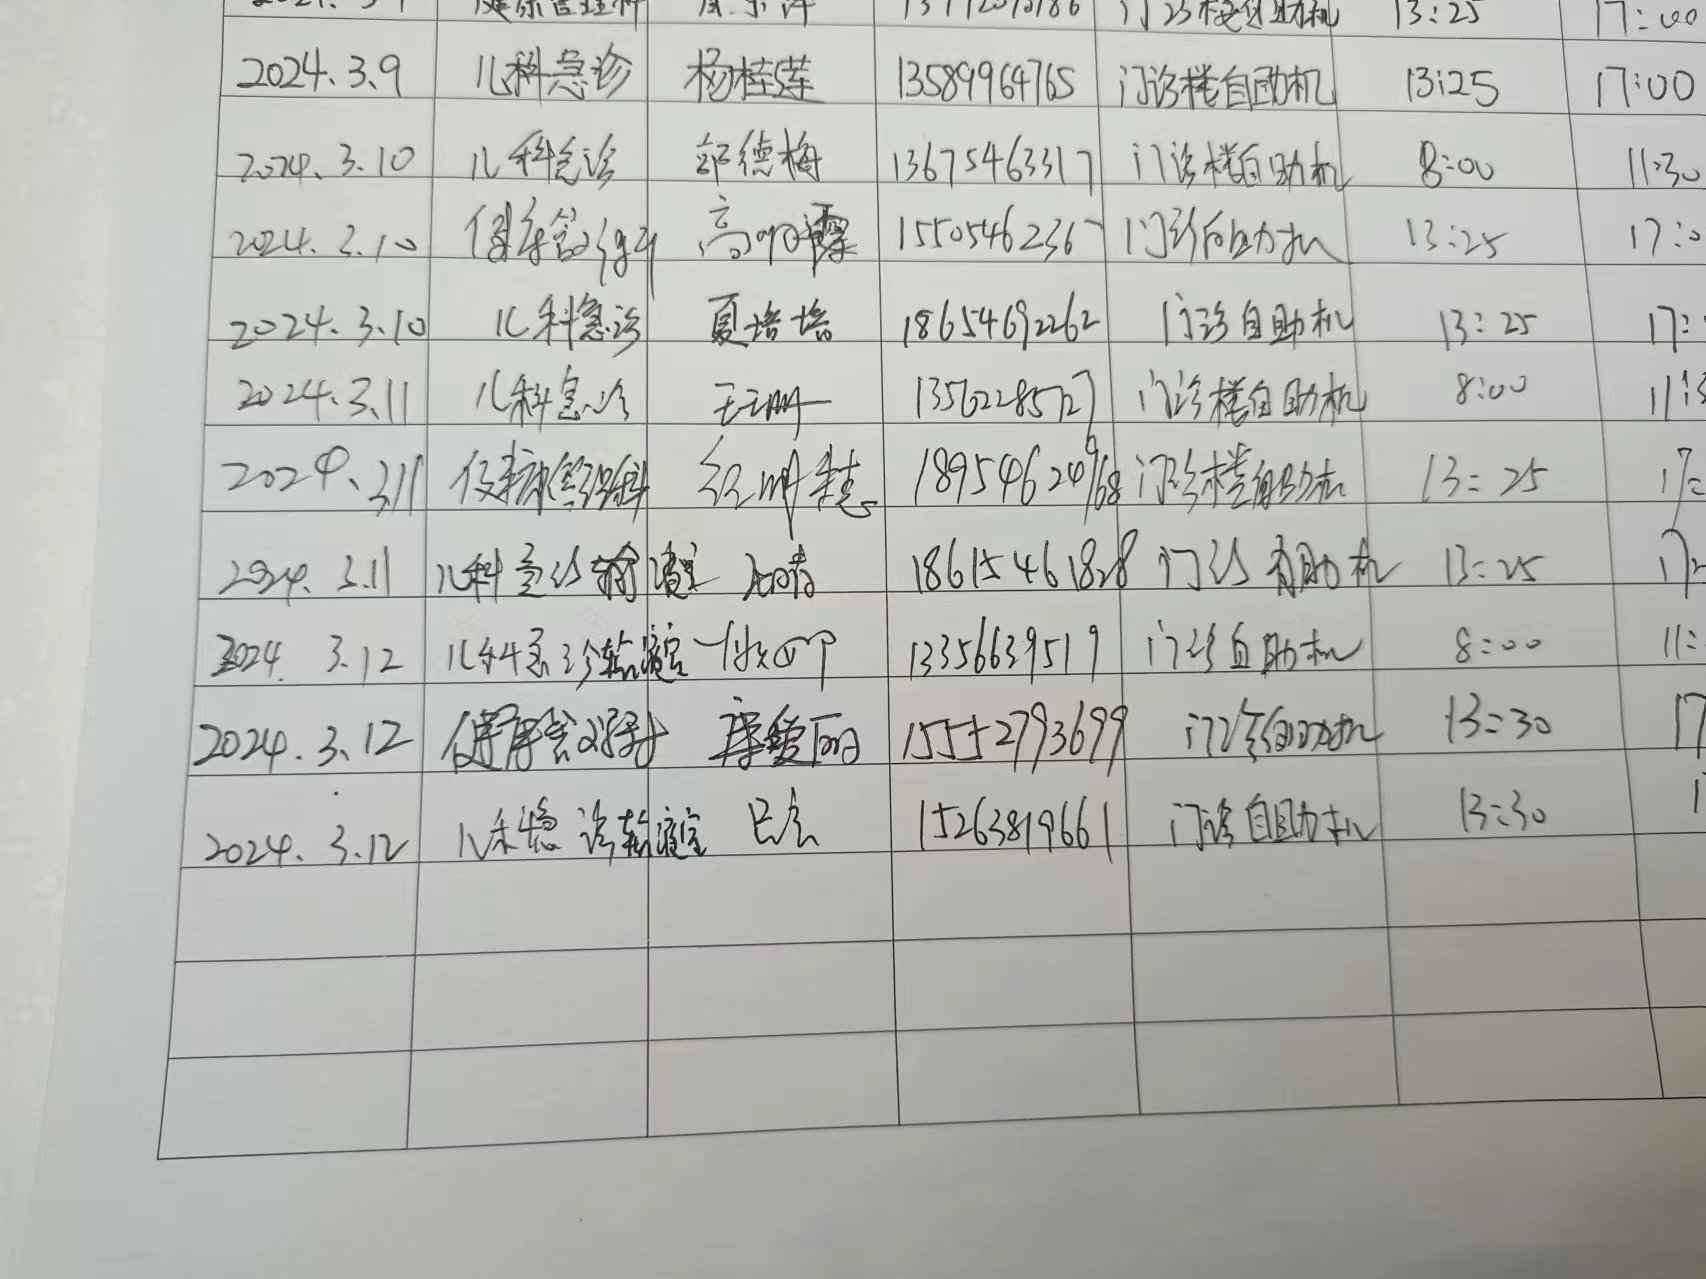 健康管理科 13:25 17:00
2024.3.9 儿科急诊 杨桂莲 13589964765 门诊楼自助机 13:25 17:00
2024.3.10 儿科急诊 郭德梅 13675463317 门诊楼自助机 8:00 11:30
2024.3.10 健康管理科 高明霞 15505462367 门诊自助机 13:25 17:0
2024.3.10 儿科急诊 夏培培 18654692262 门诊自助机 13:25 17:
2024.3.11 儿科急诊 门诊楼自助机 8:00 11:3
2024.3.11 健康管理科 18954624968 门诊楼自助机 13:25 17:
2024.3.11 儿科急诊输液室 18615461828 门诊自助机 13:25 17:
2024.3.12 儿科急诊输液室 13356639519 门诊自助机 8:00 11:
2024.3.12 健康管理科 15552793699 门诊自助机 13:30 17
2024.3.12 儿科急诊输液室 15263819661 门诊自助机 13:30 1